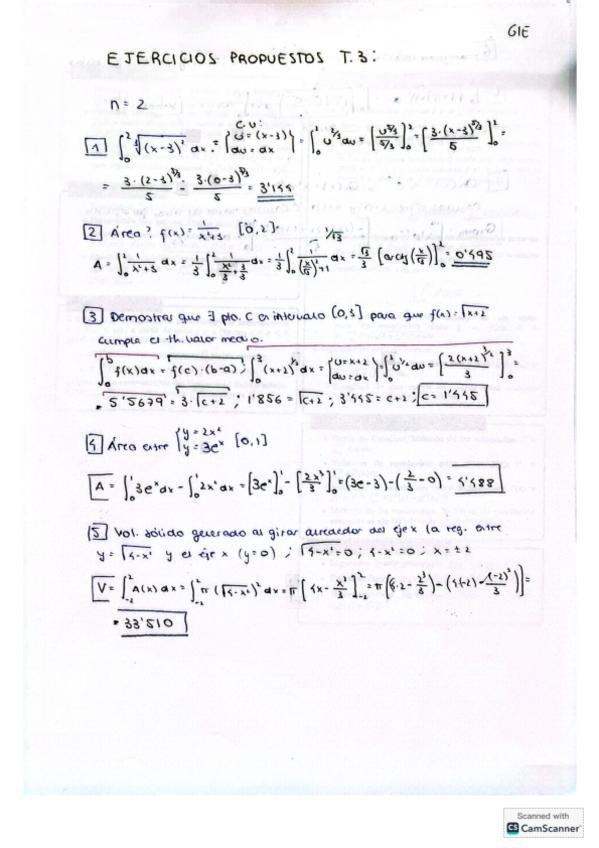 GIE
EJERCICIOS PROPUESTOS T.3:
n = 2
1 ∫₀² ∛(x-3)² dx = {C.V: u = (x-3) du = dx} = ∫₀² u^(2/3) du = [u^(5/3) / 5/3]₀² = [3·(x-3)^(5/3) / 5]₀² =
= 3·(2-3)^(5/3) / 5 - 3·(0-3)^(5/3) / 5 = 3'144
2 Área? f(x) = 1/(x²+3) [0,2].
A = ∫₀² 1/(x²+3) dx = 1/3 ∫₀² 1/(x²/3 + 3/3) dx = 1/3 ∫₀² 1/((x/√3)²+1) dx = √3/3 [arctg(x/√3)]₀² = 0'495
3 Demostrar que ∃ pto. C en intervalo [0,3] para que f(x) = √(x+2)
cumpla el th. valor medio.
∫ₐᵇ f(x) dx = f(c)·(b-a) ; ∫₀³ (x+2)^(1/2) dx = {u = x+2 du = dx} = ∫₀³ u^(1/2) du = [2(x+2)^(3/2) / 3]₀³ =
= 5'5679 = 3·√(c+2) ; 1'856 = √(c+2) ; 3'445 = c+2 ; c = 1'445
4 Área entre {y = 2x² y = 3eˣ [0,1]
A = ∫₀¹ 3eˣ dx - ∫₀¹ 2x² dx = [3eˣ]₀¹ - [2x³/3]₀¹ = (3e-3) - (2/3 - 0) = 4'488
5 Vol. sólido generado al girar alrededor del eje x la reg. entre
y = √(4-x²) y el eje x (y=0) ; √(4-x²) = 0 ; 4-x² = 0 ; x = ±2
V = ∫₋₂² A(x) dx = ∫₋₂² π (√(4-x²))² dx = π [4x - x³/3]₋₂² = π [(4·2 - 2³/3) - (4(-2) - (-2)³/3)] =
= 33'510
Scanned with
CS CamScanner